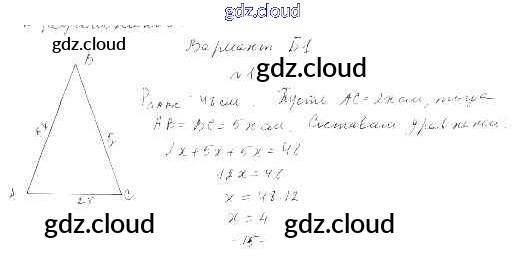 gdz.cloud
gdz.cloud
Вариант Б1
№1
gdz.cloud
B
P ABC = 48 см. Пусть AC = 2x см, тогда
AB = BC = 5x см. Составим уравнение:
5x
5x
2x+5x+5x=48
12x=48
x = 48:12
x = 4
A
2x
C
gdz.cloud
gdz.cloud
-15-